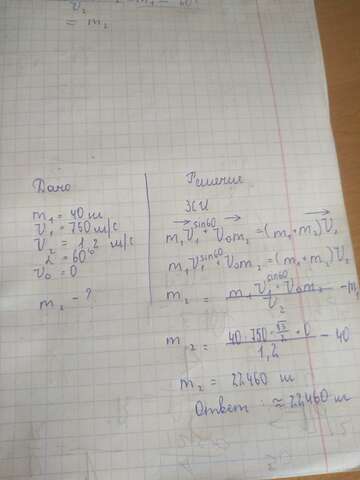 V₂
= m₂
Дано
m₁ = 40 ш
V₁ = 750 м/с
V₂ = 1,2 м/с
α = 60°
V₀ = 0
m₂ - ?
Решение
ЗСИ
m₁V₁ sin60 + V₀m₂ = (m₁+m₂)V₂
m₁V₁ sin60 + V₀m₂ = (m₁+m₂)V₂
m₂ = (m₁V₁ sin60 + V₀m₂)/V₂ - m₁
m₂ = (40·750·√3/2 + 0)/1,2 - 40
m₂ = 22460 ш
Ответ: ≈22460 ш